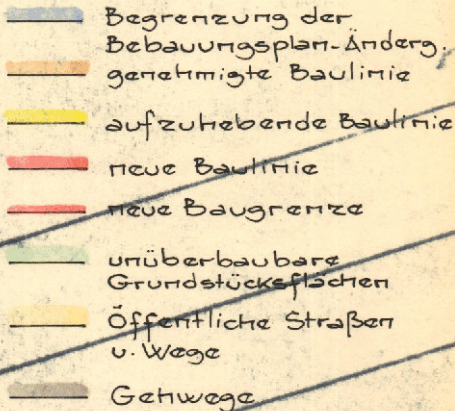 Begrenzung der
Bebauungsplan-Änderg.
genehmigte Baulinie
aufzuhebende Baulinie
neue Baulinie
neue Baugrenze
unüberbaubare
Grundstücksflächen
Öffentliche Straßen
u. Wege
Gehwege